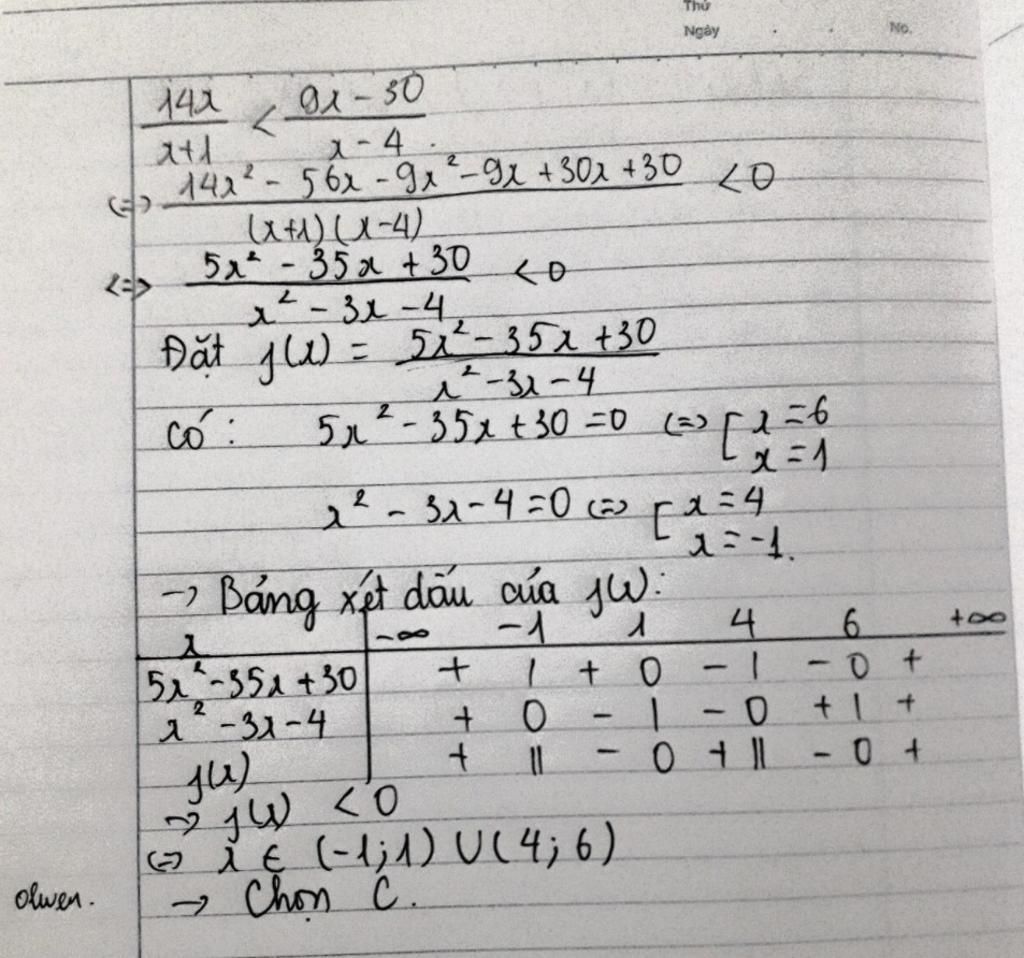 Thứ
Ngày . . No.
14x/(x+1) < (9x - 30)/(x - 4).
<=> (14x² - 56x - 9x² - 9x + 30x + 30)/((x+1)(x-4)) < 0
<=> (5x² - 35x + 30)/(x² - 3x - 4) < 0
Đặt f(x) = (5x² - 35x + 30)/(x² - 3x - 4)
Có: 5x² - 35x + 30 = 0 <=> [ x = 6
x = 1
x² - 3x - 4 = 0 <=> [ x = 4
x = -1.
→ Bảng xét dấu của f(x):
x | -∞ -1 1 4 6 +∞
5x² - 35x + 30 | + | + 0 - | - 0 +
x² - 3x - 4 | + 0 - | - 0 + | +
f(x) | + || - 0 + || - 0 +
→ f(x) < 0
<=> x ∈ (-1; 1) ∪ (4; 6)
olwen. → Chọn C.